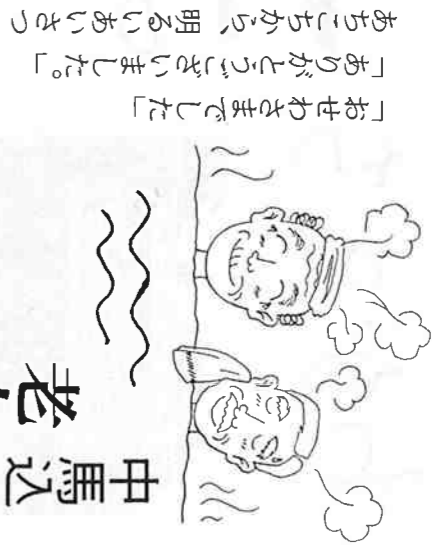 中馬込
老
「おせわさまでした」
「ありがとうございました。」
あちこちから、明るいあいさつ